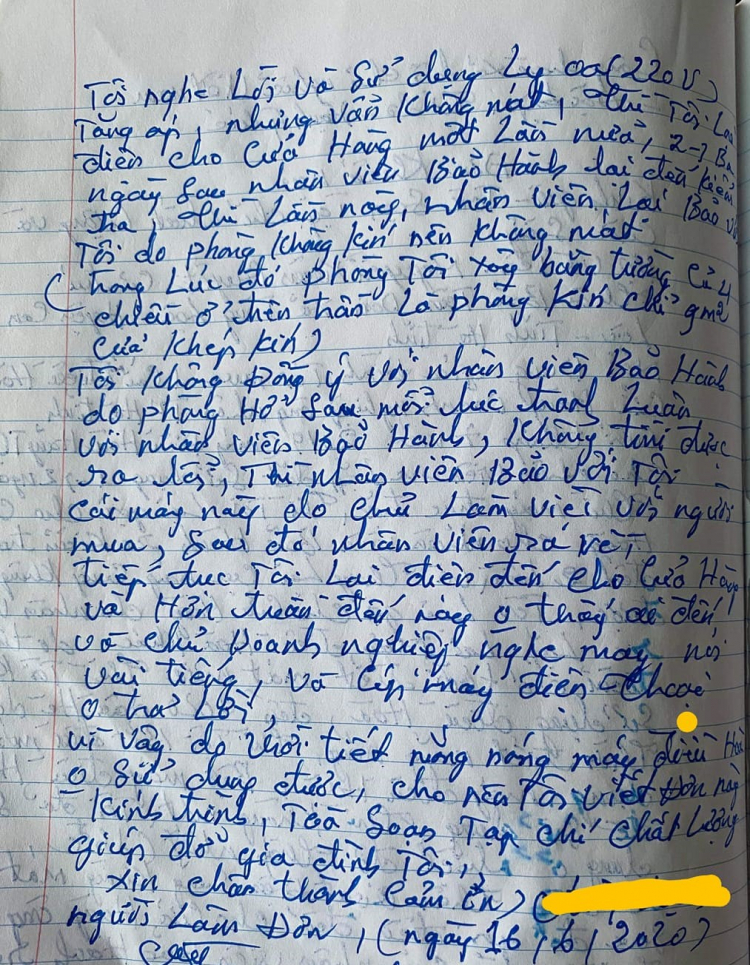 Tôi nghe Lời và Sử dụng Ly oa (220V)
Tăng áp, nhưng vẫn không mát, thì Tôi Lại
điện cho Cửa Hàng một Lần nữa, 2-3
ngày sau nhân viên Bảo Hành lại đến kiểm
tra, thì Lần này, nhân viên Lại Bảo với
Tôi do phòng không kín nên không mát
(trong Lúc đó phòng Tôi xây bằng tường cả 4
chiều ở trên trần Là phòng kín chỉ 9m2
cửa khép kín)
Tôi không Đồng ý với nhân viên Bảo Hành
do phòng Hở sau một lúc tranh Luận
với nhân viên Bảo Hành, không tìm được
ra lỗi, Thì nhân viên Bảo với Tôi
cái máy này do chủ Làm việc với người
mua, sau đó nhân viên ra về,
tiếp tục Tôi Lại điện đến cho Cửa Hàng
và Hơn tuần đến nay 0 thấy ai đến
và chủ Doanh nghiệp nghe máy nói
vài tiếng, và Cúp máy điện thoại
0 trả Lời,
vì vậy do thời tiết nắng nóng máy điều Hoà
0 Sử dụng được, cho nên Tôi viết Đơn này
Kính trình, Toà Soạn Tạp chí Chất Lượng
giúp đỡ gia đình Tôi,
Xin chân thành Cảm ơn)
người Làm Đơn, (ngày 16, 6, 2020)